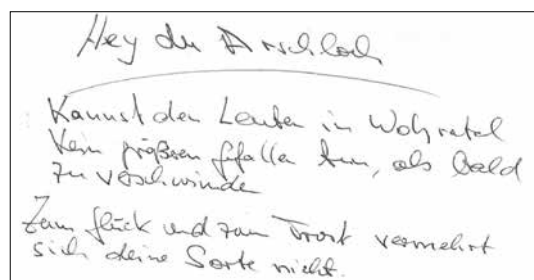 Hey du Arschloch
Kannst den Leuten in Wohratal
kein größeren gefallen tun, als bald
zu verschwinde
Zum glück und zum Trost vermehrt
sich deine Sorte nicht.